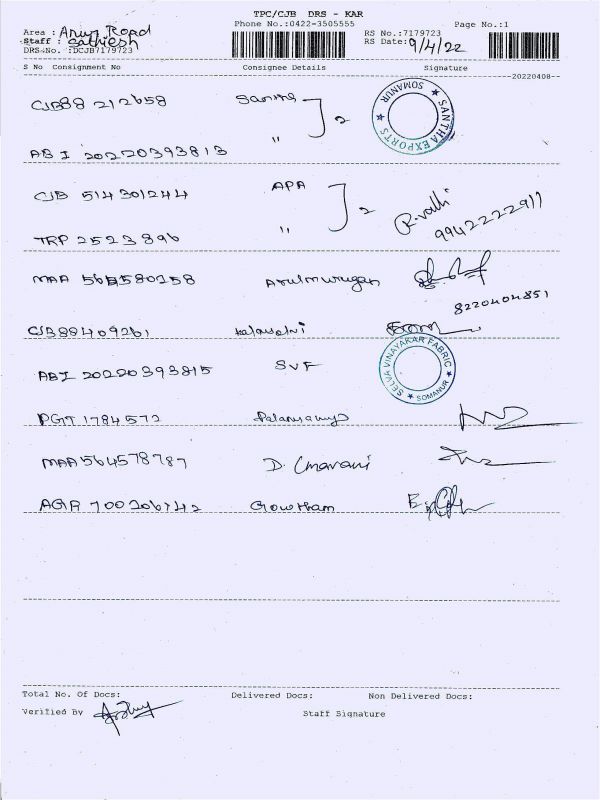 TPC/CJB DRS - KAR
Phone No.:0422-3505555
Page No.:1
Area : Anur Road
RS No.:7179723
Staff : Sathiesh
RS Date: 9/4/22
DRS No. :DCJB7179723
S No Consignment No Consignee Details Signature
20220408
CJB88 212658 Sanine
SANTHA EXPORTS ★ SOMANUR ★
2
ABI 20220393813 "
CJB 514301244 APA
2
R. valli
9942222911
TRP 2523896 "
MAA 564580258 Arulmurugan
8220404851
CJB88409261
ABI 20220393815 SVF
SELVA VINAYAKAR FABRIC ★ SOMANUR ★
PGT 1784572
MAA 564578787 D.
AGA 700206742 Gowtham
Total No. Of Docs: Delivered Docs: Non Delivered Docs:
Verified By
Staff Signature